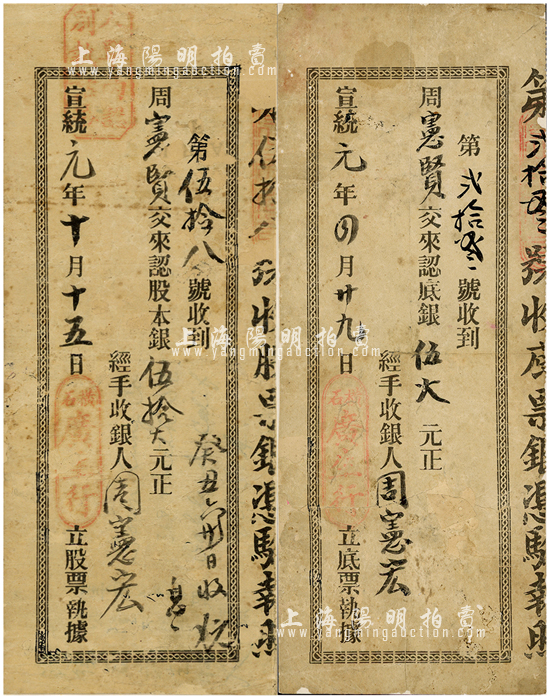 第貳拾叁號收底票銀憑騐
第貳拾叁號收到
周憲賢交來認底銀伍大元正
經手收銀人周憲宏
宣統元年四月廿九日
立底票執據
廣
行
號收股票銀憑騐
第伍拾八號收到
周憲賢交來認股本銀伍拾大元正
癸丑
日收
經手收銀人周憲宏
宣統元年十月十五日
立股票執據
廣
行
上海陽明拍賣
www.yangmingauction.com
上海陽明拍賣
www.yangmingauction.com
上海陽明拍賣
www.yangmingauction.com
上海陽明拍賣
www.yangmingauction.com
上海陽明拍賣
www.yangmingauction.com